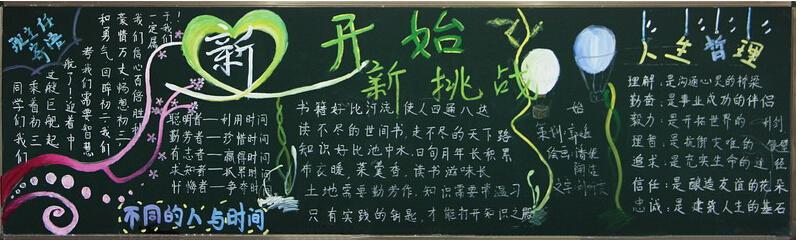 班主任
寄语
同学们我们
乘着初三
这艘巨舰起
航了！迎着中
考我们需要智慧
和勇气回眸初二我们
豪情万丈畅想初三
我们信心百倍胜利
一定属
于我们！
新
开始
新挑战
聪明者——利用时间
勤劳者——珍惜时间
有志者——赢得时间
求知者——抓紧时间
忏悔者——争夺时间
不同的人与时间
书籍好比河流，使人四通八达
读不尽的世间书，走不尽的天下路
知识好比池中水，日旬月年长积累
布衣暖，菜羹香，读书滋味长
土地需要勤耕作，知识需要常温习
只有实践的钥匙，才能打开知识之门
人生哲理
理解：是沟通心灵的桥梁
勤奋：是事业成功的伴侣
毅力：是开拓世界的
理智：是抗衡灾难的
追求：是充实生命的途径
信任：是酿造友谊的花朵
忠诚：是建筑人生的基石